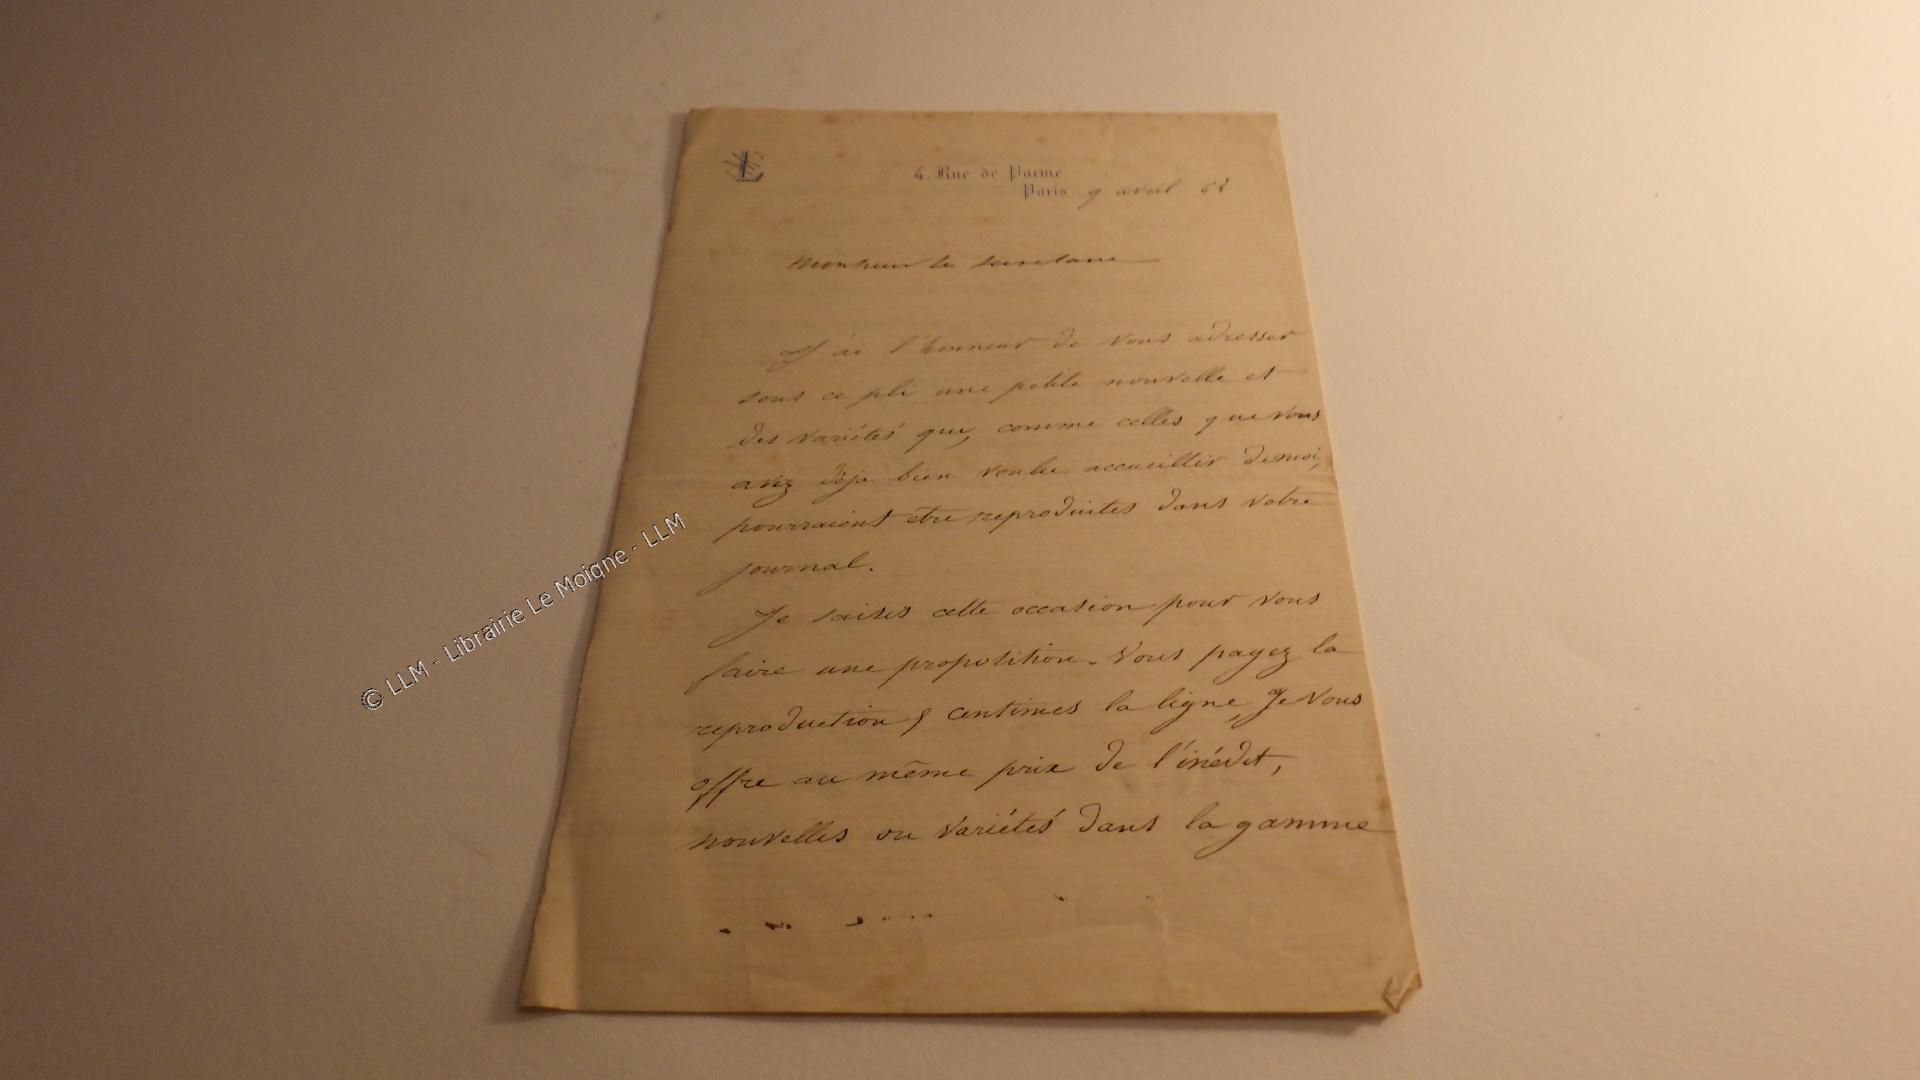 L
4, Rue de Parme
Paris, 9 avril 68
Monsieur le secrétaire
J'ai l'honneur de vous adresser
sous ce pli une petite nouvelle et
des variétés qui, comme celles que vous
avez déjà bien voulu accueillir de moi,
pourraient être reproduites dans votre
journal.
Je saisis cette occasion pour vous
faire une proposition. Vous payez la
reproduction 5 centimes la ligne, Je vous
offre au même prix de l'inédit,
nouvelles ou variétés dans la gamme
© LLM - Librairie Le Moigne - LLM